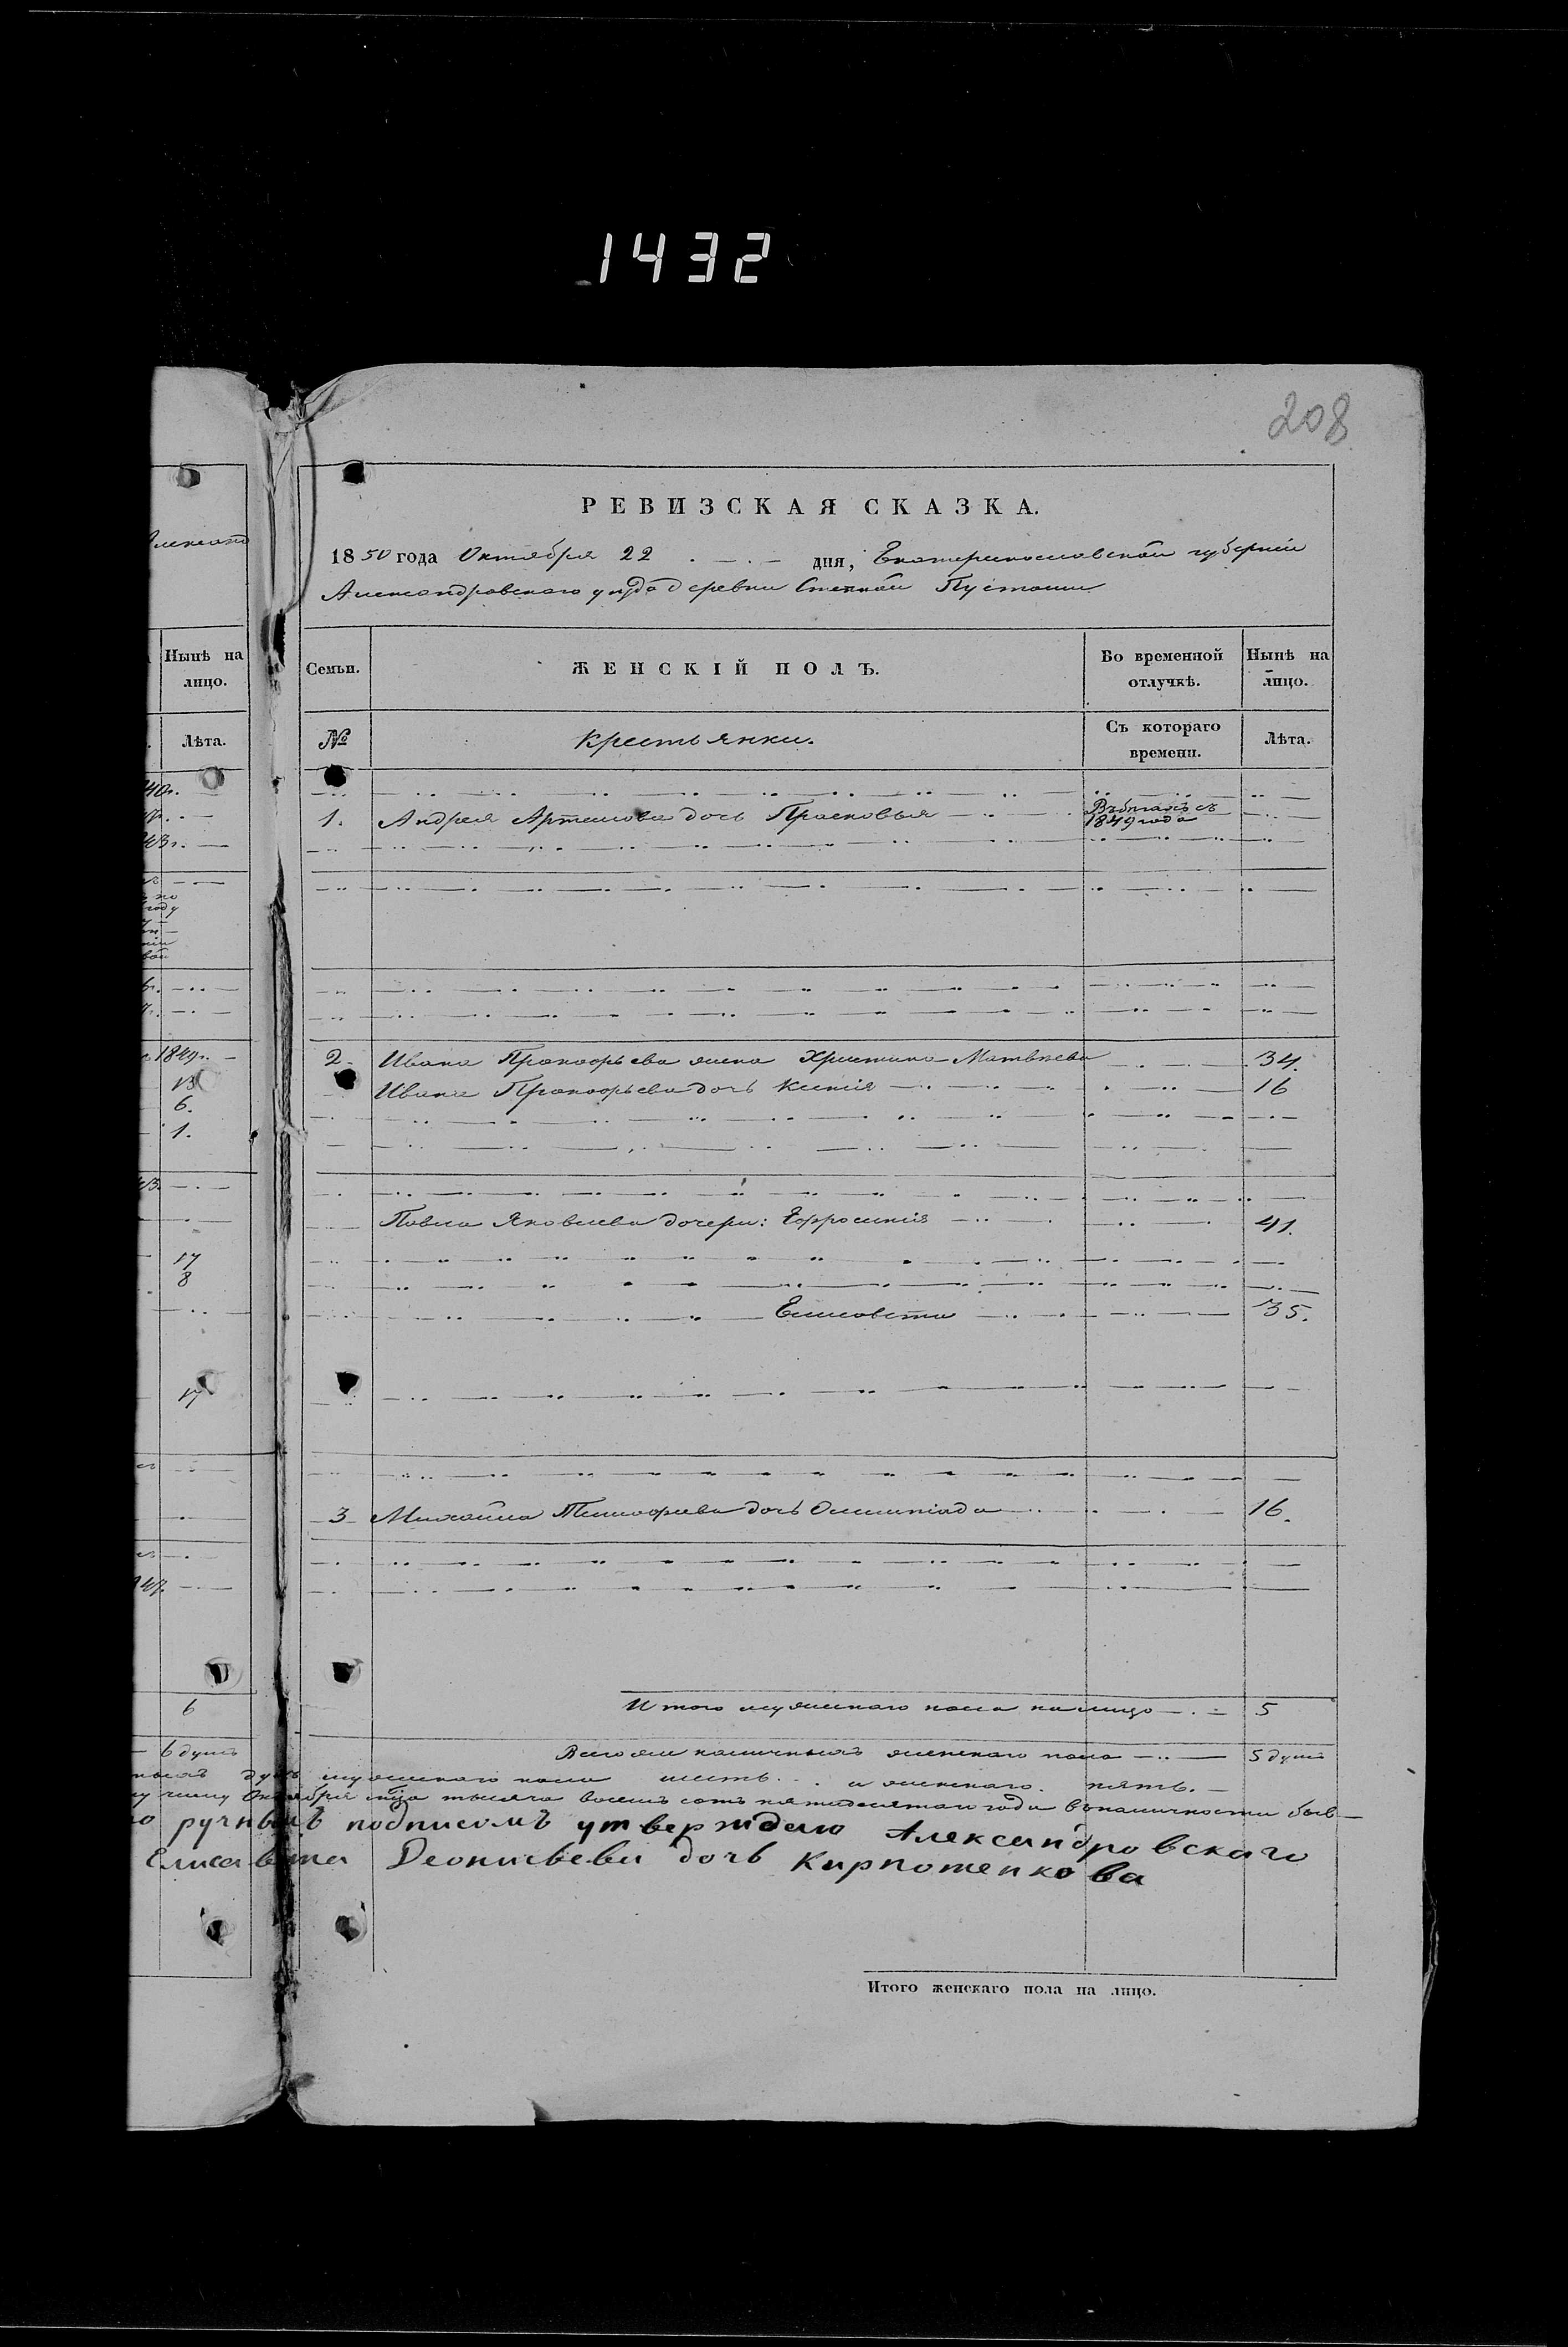 1432
208
РЕВИЗСКАЯ СКАЗКА.
1850 года Октября 22 дня, Екатеринославской губернiи
Александровского уезда деревни Степной Пустоши
Нынѣ на лицо.
Семьи.
ЖЕНСКIЙ ПОЛЪ.
Во временной отлучкѣ.
Нынѣ на лицо.
Лѣта.
№
Крестьянки.
Съ котораго времени.
Лѣта.
1. Андрея Артемова дочь Прасковья Въ бегахъ съ 1849 года
2 Ивана Прокофьева жена Христина Матвѣева 34.
Ивана Прокофьева дочь Ксенiя 16
6.
1.
Павла Яковлева дочери: Ефросинiя 41.
17
8
Елисавета 35.
17
3 Михайла Тимофеева дочь Олимпiада 16.
6 Итого женскаго пола на лицо 5
6 душъ Всего же наличныхъ женскаго пола 5 душъ
душъ мужескаго пола шесть и женскаго пять.
Октября мца тысяча восемь сотъ пятидесятаго года въ наличности было
ручнымъ подписомъ утверждаю Александровскаго
Елисавета Деонисьева дочь Кирпотенкова
Итого женскаго пола на лицо.